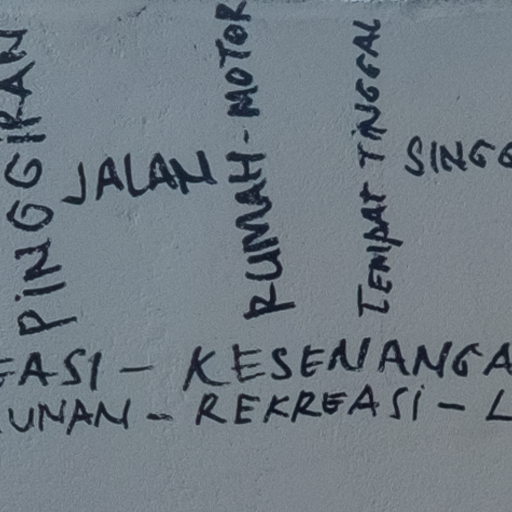 PINGGIRAN
JALAN
RUMAH-MOTOR
TEMPAT TINGGAL
SINGG
EASI - KESENANGA
UNAN - REKREASI - L